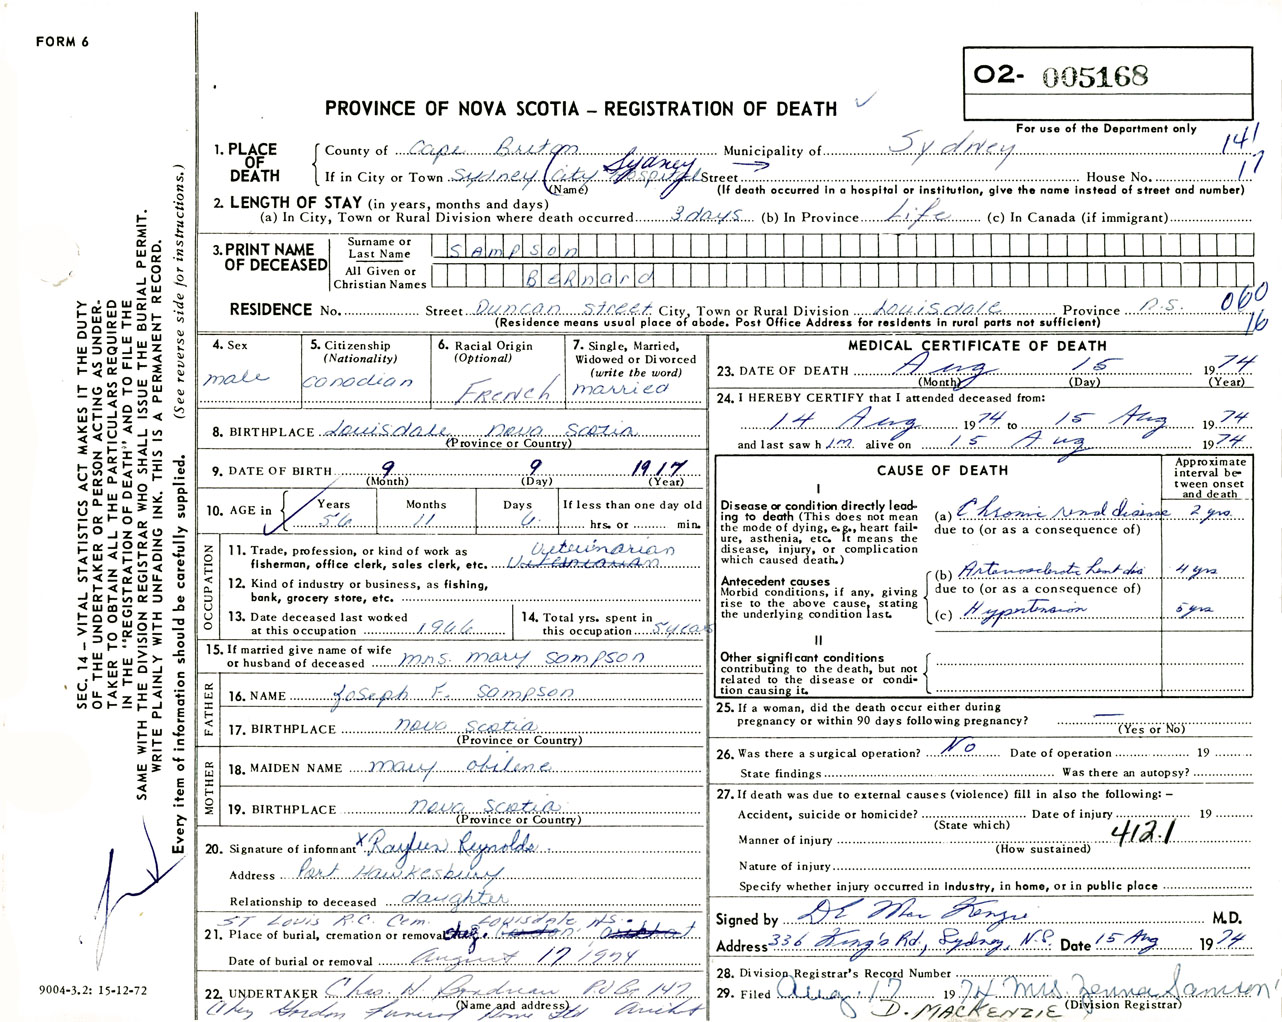 FORM 6
O2- 005168
PROVINCE OF NOVA SCOTIA – REGISTRATION OF DEATH
For use of the Department only
141
17
1. PLACE OF DEATH
County of Cape Breton Municipality of Sydney
If in City or Town Sydney (City Hospital Sydney Street House No.
(Name) (If death occurred in a hospital or institution, give the name instead of street and number)
2. LENGTH OF STAY (in years, months and days)
(a) In City, Town or Rural Division where death occurred 3 days (b) In Province Life (c) In Canada (if immigrant)
3. PRINT NAME OF DECEASED
Surname or Last Name SAMPSON
All Given or Christian Names BERNARD
RESIDENCE No. Street Duncan Street City, Town or Rural Division Louisdale Province N.S.
060
16
(Residence means usual place of abode. Post Office Address for residents in rural parts not sufficient)
4. Sex
male
5. Citizenship
(Nationality)
Canadian
6. Racial Origin
(Optional)
French
7. Single, Married,
Widowed or Divorced
(write the word)
married
8. BIRTHPLACE Louisdale Nova Scotia
(Province or Country)
9. DATE OF BIRTH 9 9 1917
(Month) (Day) (Year)
10. AGE in Years Months Days If less than one day old
56 11 6 hrs. or min.
OCCUPATION
11. Trade, profession, or kind of work as Veterinarian
fisherman, office clerk, sales clerk, etc.
12. Kind of industry or business, as fishing,
bank, grocery store, etc.
13. Date deceased last worked
at this occupation 1966
14. Total yrs. spent in
this occupation 5 years
15. If married give name of wife
or husband of deceased Mrs. Mary Sampson
FATHER
16. NAME Joseph F. Sampson
17. BIRTHPLACE Nova Scotia
(Province or Country)
MOTHER
18. MAIDEN NAME Mary Obilene
19. BIRTHPLACE Nova Scotia
(Province or Country)
20. Signature of informant x Reynolds
Address Port Hawkesbury
Relationship to deceased daughter
St Louis R.C. Cem. Louisdale NS.
21. Place of burial, cremation or removal
Date of burial or removal August 17 1974
22. UNDERTAKER Chas. H. Boudreau P.O. Box 147
(Name and address)
Gordon Funeral Home Ltd Arichat
MEDICAL CERTIFICATE OF DEATH
23. DATE OF DEATH Aug 15 1974
(Month) (Day) (Year)
24. I HEREBY CERTIFY that I attended deceased from:
14 Aug 1974 to 15 Aug 1974
and last saw h im alive on 15 Aug 1974
CAUSE OF DEATH
Approximate interval between onset and death
I
Disease or condition directly leading to death (This does not mean the mode of dying, e.g., heart failure, asthenia, etc. It means the disease, injury, or complication which caused death.)
(a) Chronic renal disease 2 yrs.
due to (or as a consequence of)
Antecedent causes
Morbid conditions, if any, giving rise to the above cause, stating the underlying condition last.
(b) Arteriosclerotic heart dis 4 yrs
due to (or as a consequence of)
(c) Hypertension 5 yrs
II
Other significant conditions
contributing to the death, but not related to the disease or condition causing it.
25. If a woman, did the death occur either during
pregnancy or within 90 days following pregnancy? —
(Yes or No)
26. Was there a surgical operation? No Date of operation 19
State findings Was there an autopsy?
27. If death was due to external causes (violence) fill in also the following: –
Accident, suicide or homicide? Date of injury 19
(State which)
Manner of injury 412.1
(How sustained)
Nature of injury
Specify whether injury occurred in industry, in home, or in public place
Signed by D E MacKenzie M.D.
Address 336 King's Rd., Sydney, N.S. Date 15 Aug 1974
28. Division Registrar's Record Number
29. Filed Aug. 17 1974 Mrs. Samson
(Division Registrar)
D. MACKENZIE
SEC. 14 – VITAL STATISTICS ACT MAKES IT THE DUTY
OF THE UNDERTAKER OR PERSON ACTING AS UNDER-
TAKER TO OBTAIN ALL THE PARTICULARS REQUIRED
IN THE "REGISTRATION OF DEATH" AND TO FILE THE
SAME WITH THE DIVISION REGISTRAR WHO SHALL ISSUE THE BURIAL PERMIT.
WRITE PLAINLY WITH UNFADING INK. THIS IS A PERMANENT RECORD.
Every item of information should be carefully supplied. (See reverse side for instructions.)
9004-3.2: 15-12-72